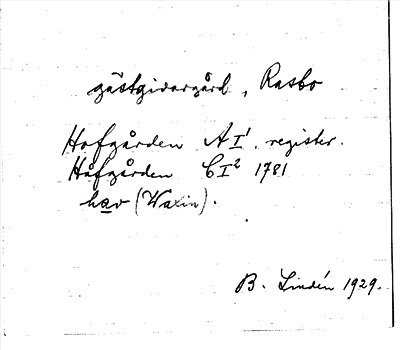 gästgivargård, Rasbo
Hofgården A I¹, register.
Håfgården C I² 1781
hav (Waxin).
B. Lindén 1929.